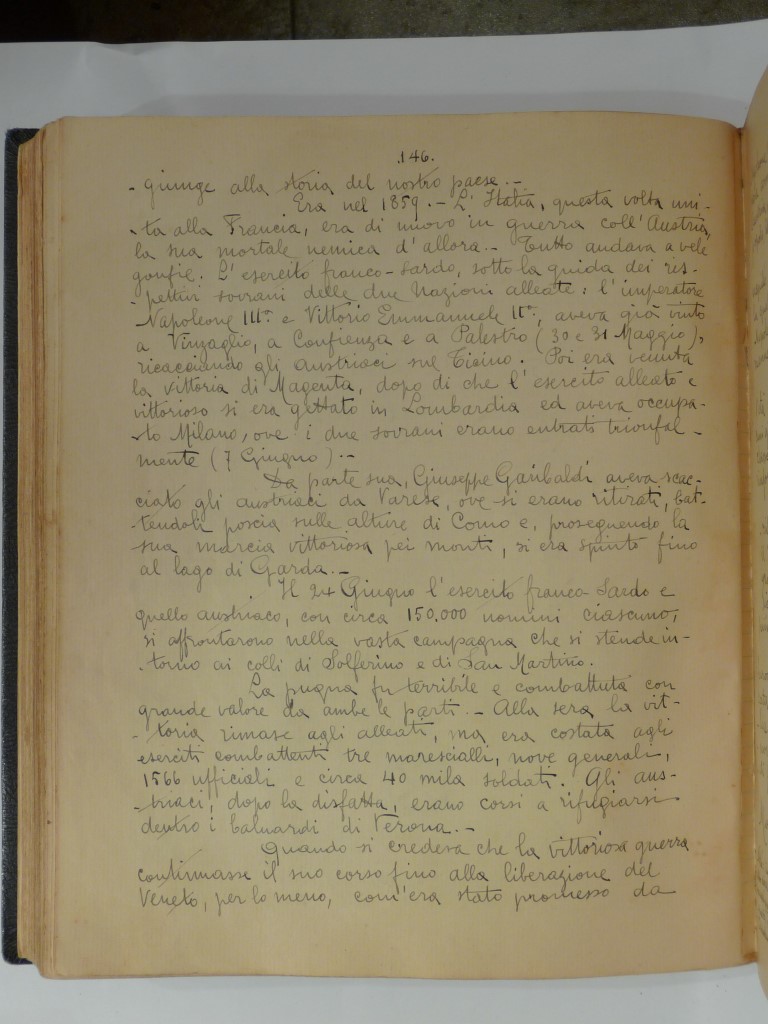 .146.
- giunge alla storia del nostro paese. -
Era nel 1859. - L'Italia, questa volta uni-
-ta alla Francia, era di nuovo in guerra coll'Austria,
la sua mortale nemica d'allora. - Tutto andava a vele
gonfie. L'esercito franco-sardo, sotto la guida dei ris-
-pettivi sovrani delle due Nazioni alleate: l'imperatore
Napoleone III° e Vittorio Emmanuele II°, aveva già vinto
a Vinzaglio, a Confienza e a Palestro (30 e 31 Maggio),
ricacciando gli austriaci sul Ticino. Poi era venuta
la vittoria di Magenta, dopo di che l'esercito alleato e
vittorioso si era gettato in Lombardia ed aveva occupa-
-to Milano, ove i due sovrani erano entrati trionfal-
mente (7 Giugno). -
Da parte sua, Giuseppe Garibaldi aveva scac-
ciato gli austriaci da Varese, ove si erano ritirati, bat-
-tendoli poscia sulle alture di Como e, proseguendo la
sua marcia vittoriosa pei monti, si era spinto fino
al lago di Garda. -
Il 24 Giugno l'esercito franco-sardo e
quello austriaco, con circa 150,000 uomini ciascuno,
si affrontarono nella vasta campagna che si stende in-
-torno ai colli di Solferino e di San Martino.
La pugna fu terribile e combattuta con
grande valore da ambe le parti. - Alla sera la vit-
-toria rimase agli alleati, ma era costata agli
eserciti combattenti tre marescialli, nove generali,
1566 ufficiali e circa 40 mila soldati. Gli aus-
-triaci, dopo la disfatta, erano corsi a rifugiarsi
dentro i baluardi di Verona. -
Quando si credeva che la vittoriosa guerra
continuasse il suo corso fino alla liberazione del
Veneto, per lo meno, com'era stato promesso da